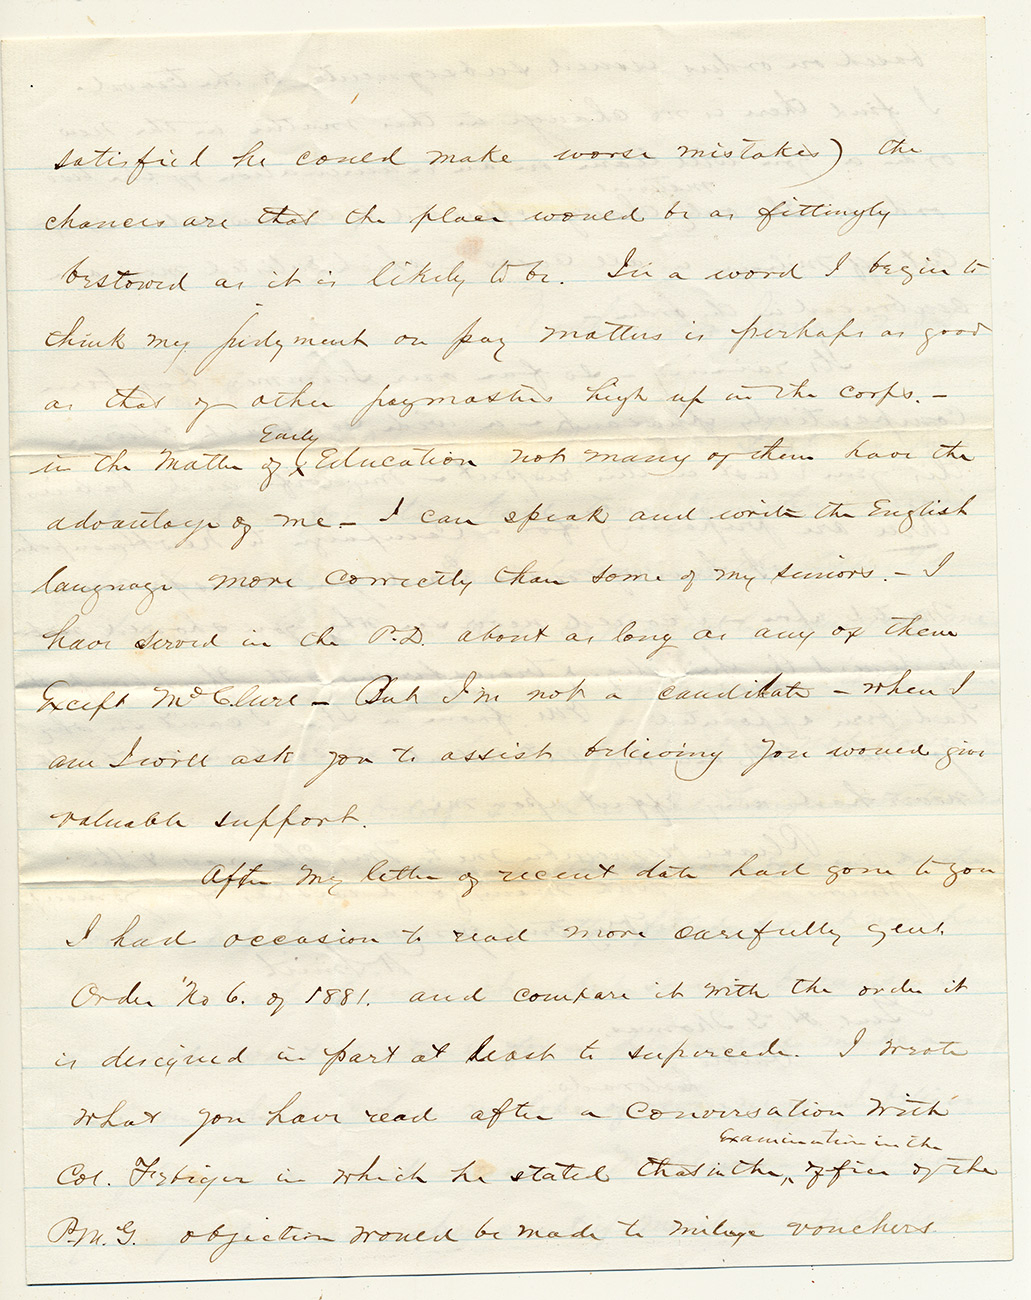 satisfied he could make worse mistakes) the
chances are that the place would be as fittingly
bestowed as it is likely to be. In a word I begin to
think my judgment on pay matters is perhaps as good
as that of other paymasters high up in the corps. –
Early
in the Matter of Education not many of them have the
advantage of me – I can speak and write the English
language more correctly than some of my seniors. – I
have served in the P.D. about as long as any of them
Except McClure – But I'm not a candidate – when I
am I will ask you to assist believing you would give
valuable support.
After my letter of recent date had gone to you
I had occasion to read more carefully genl.
Order No 6. of 1881. and compare it with the order it
is designed in part at least to supercede. I wrote
what you have read after a conversation with
Examination in the
Col. in which he stated that in the office of the
P.M.G. objection would be made to milage vouchers